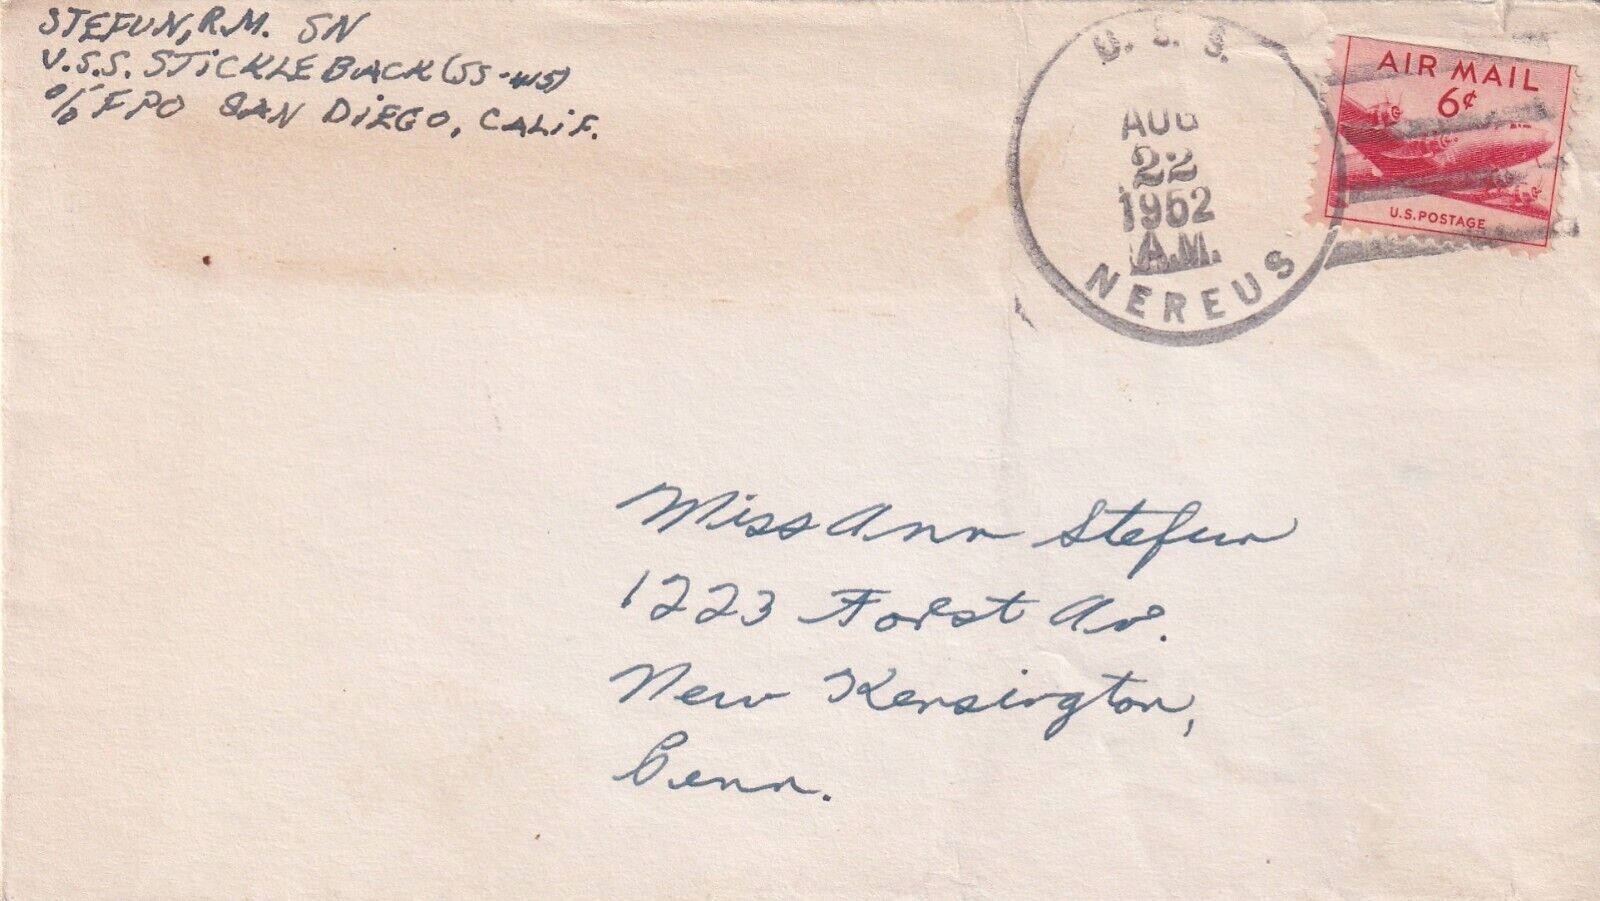 STEFUN, R.M. SN
U.S.S. STICKLEBACK (SS-415)
c/o FPO SAN DIEGO, CALIF.
U.S.S.
AUG
22
1952
A.M.
NEREUS
AIR MAIL
6¢
U.S. POSTAGE
Miss Ann Stefun
1223 Forst Av.
New Kensington,
Penn.